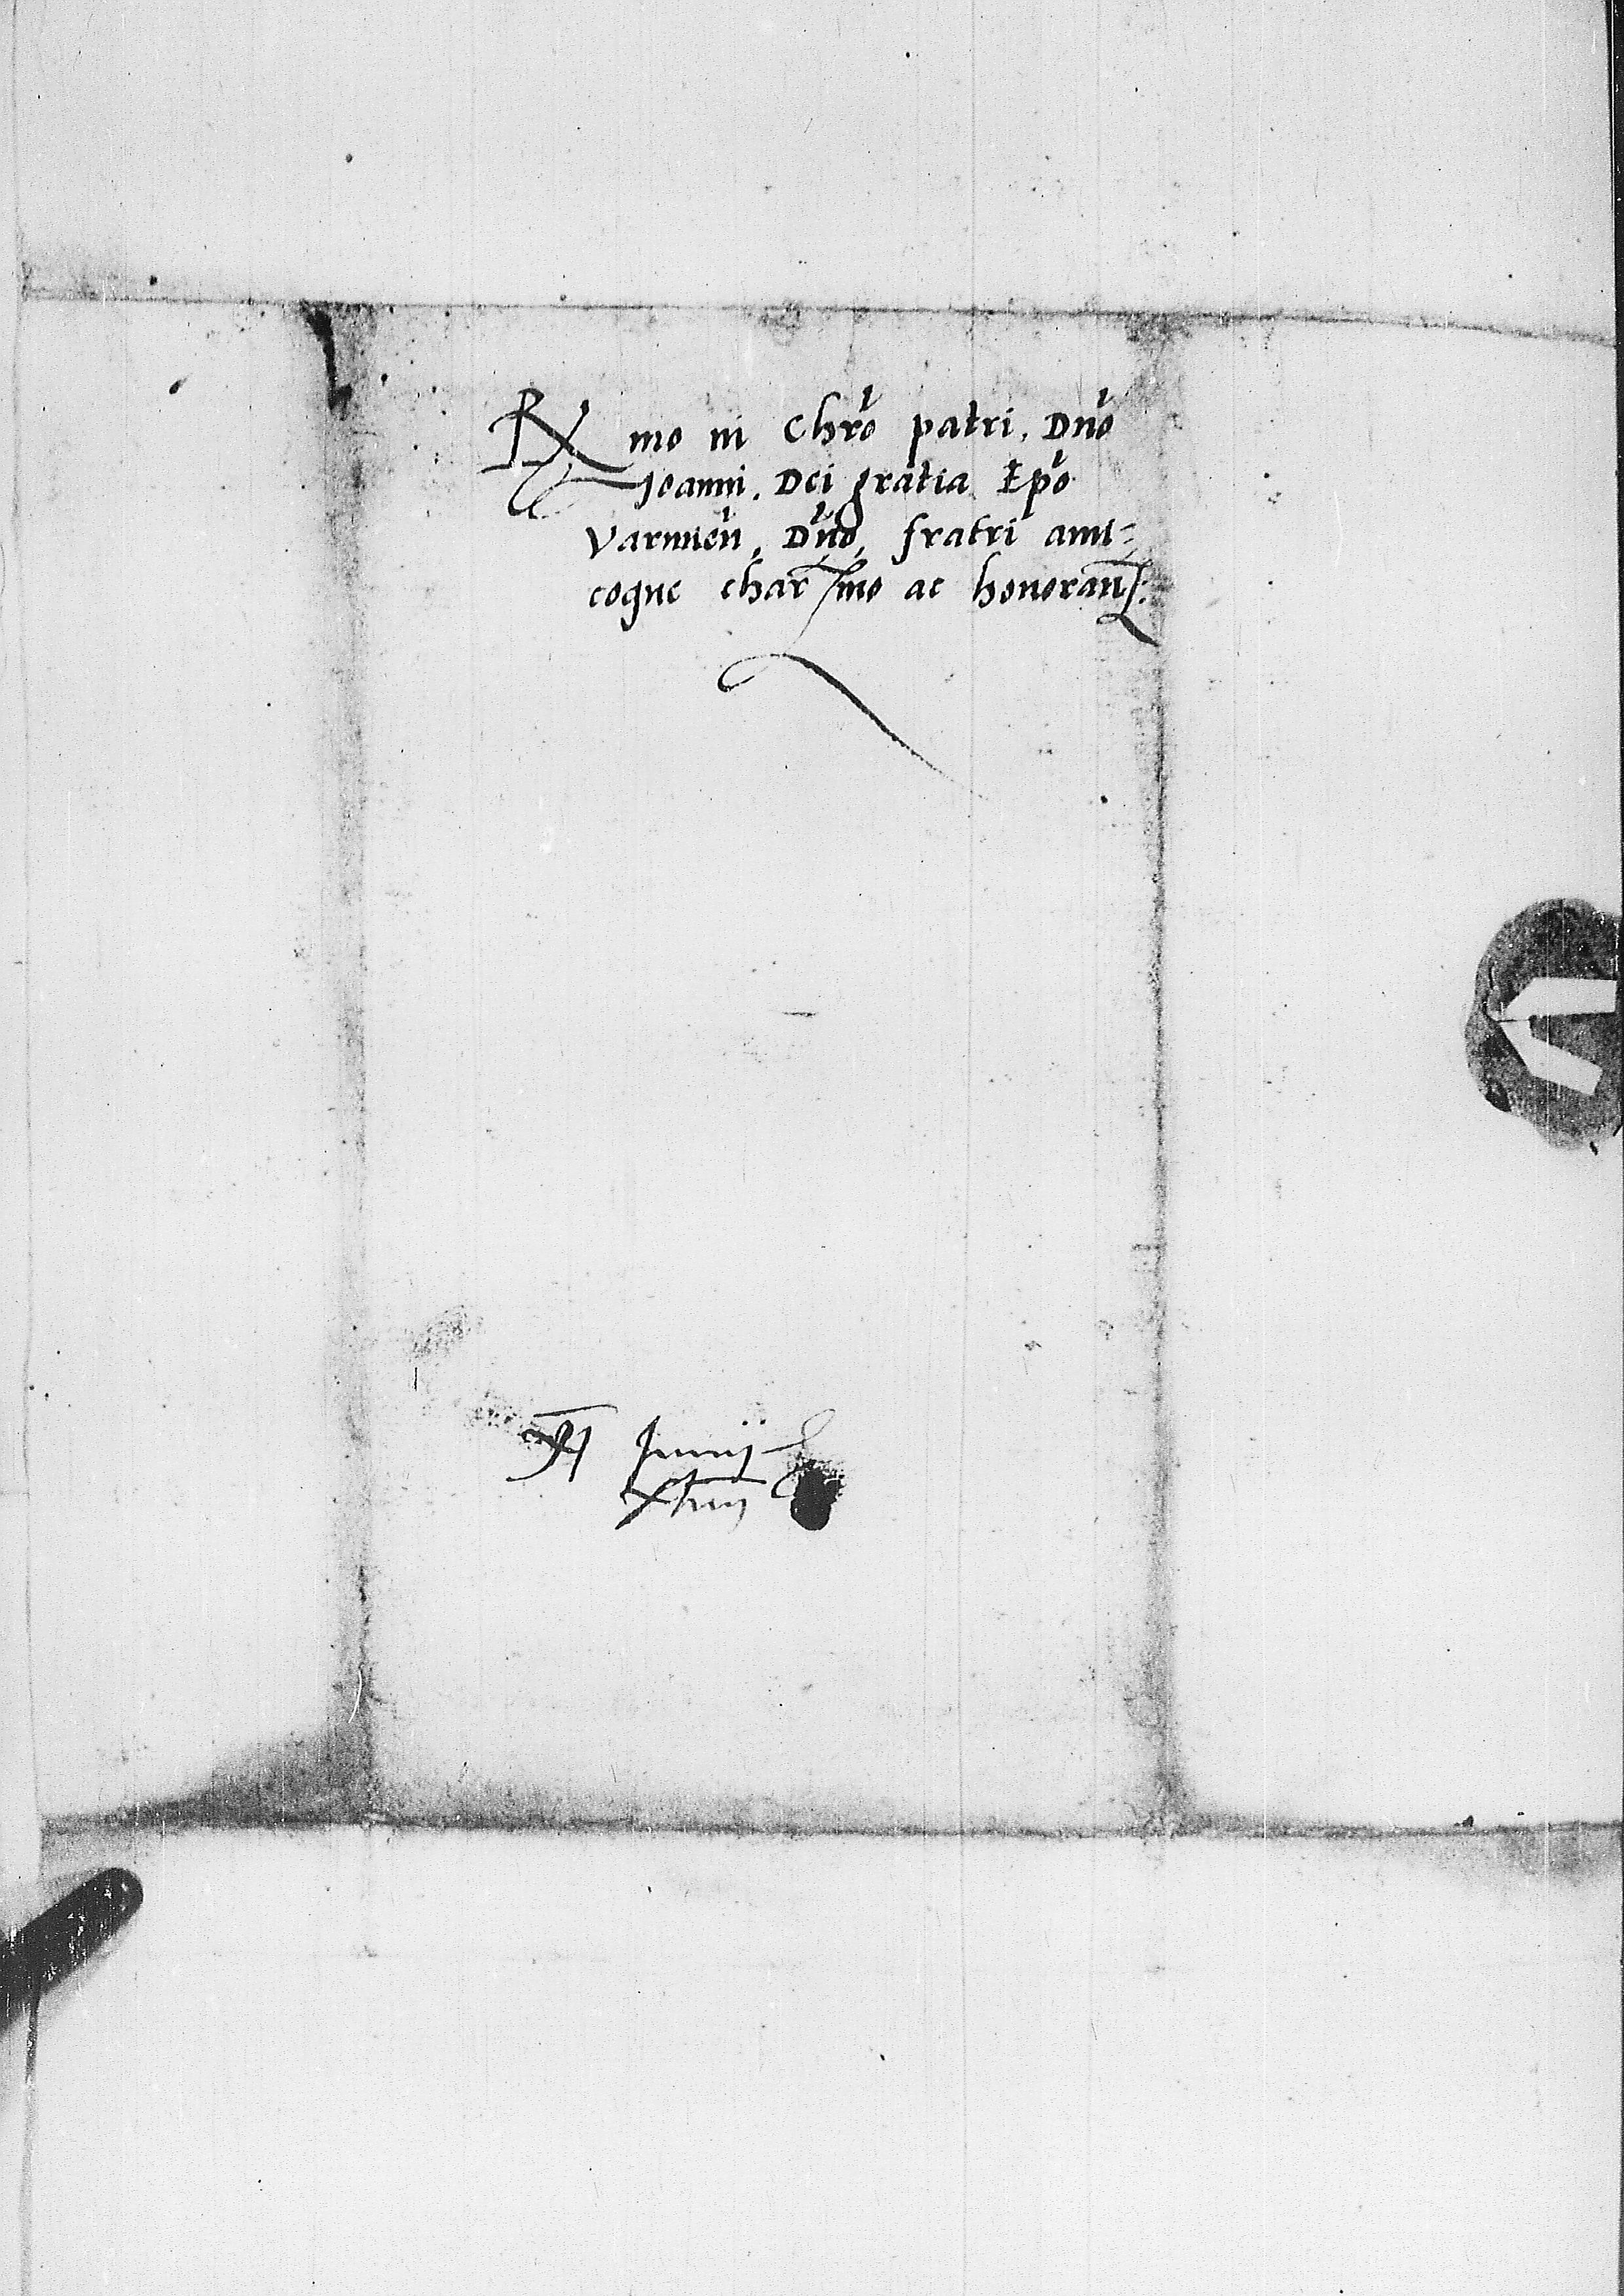 Rmo in Chro patri, Dno
Joanni, Dei gratia Epo
Varmien, Dno, fratri ami-
coque charmo ac honoran.
Junij